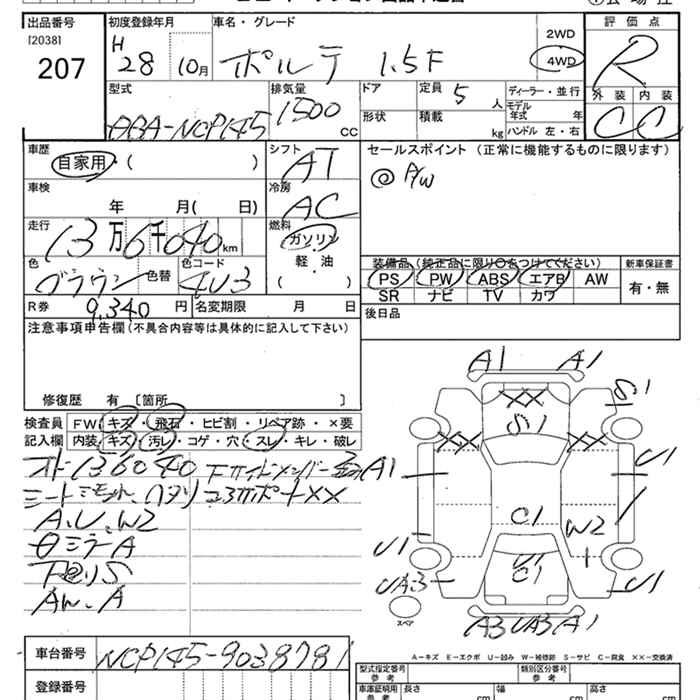 出品番号 初度登録年月 車名・グレード 評価点
[2038] H
207 28 10月 ポルテ 1.5F 2WD 4WD R
型式 排気量 ドア 定員 5 人 ディーラー・並行 外装 内装
モデル年式 年
DBA-NCP145 1500 CC 形状 積載 kg ハンドル 左・右 C C
車歴 シフト セールスポイント (正常に機能するものに限ります)
自家用・( ) AT ◎ P/W
車検 冷房
年 月( 日) AC
走行 燃料
13万6千040km ガソリン
色 色替 色コード 軽・油 装備品 (純正品に限り○をつけてください) 新車保証書
ブラウン 4U3 ( ) PS PW ABS エアB AW 有・無
SR ナビ TV カワ
R券 9,340円 名変期限 月 日 後日品
注意事項申告欄(不具合内容等は具体的に記入して下さい)
修復歴 有 [箇所 ]
検査員 FW キズ・飛石・ヒビ割・リペア跡・×要
記入欄 内装 キズ・汚レ・コゲ・穴・スレ・キレ・破レ
A、U、W2
下回りS
A1 A1
XX S1
S1
XX XX
A1 U1
C1 W2
U1 U1
C1
UA3 U1
スペア
A3 UA3 A1
A-キズ E-エクボ U-凹み W-補修跡 S-サビ C-腐食 ××-交換済
車台番号 NCP145-9038781
登録番号
型式指定番号 参考 類別区分番号 参考
車庫証明用 参考 長さ cm 幅 cm 高さ cm